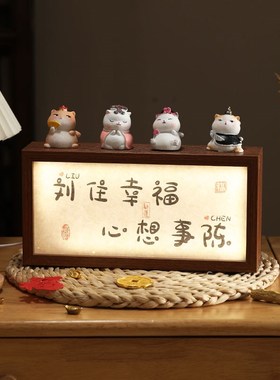 LIU
刘住幸福
CHEN
心想事陈